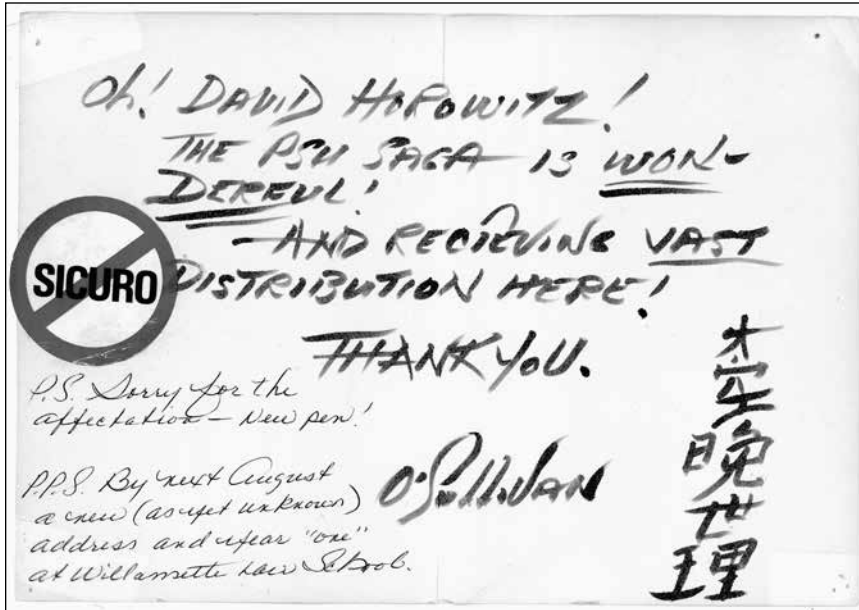 Oh! DAVID HOROWITZ!
THE PSU SAGA IS WON-
DERFUL!
-AND RECIEVING VAST
DISTRIBUTION HERE!
THANK YOU.
SICURO
P.S. Sorry for the
affectation - New pen!
P.P.S. By next August
a new (as yet unknown)
address and year "one"
at Willamette Law School.
O'Sullivan
晩
世
理